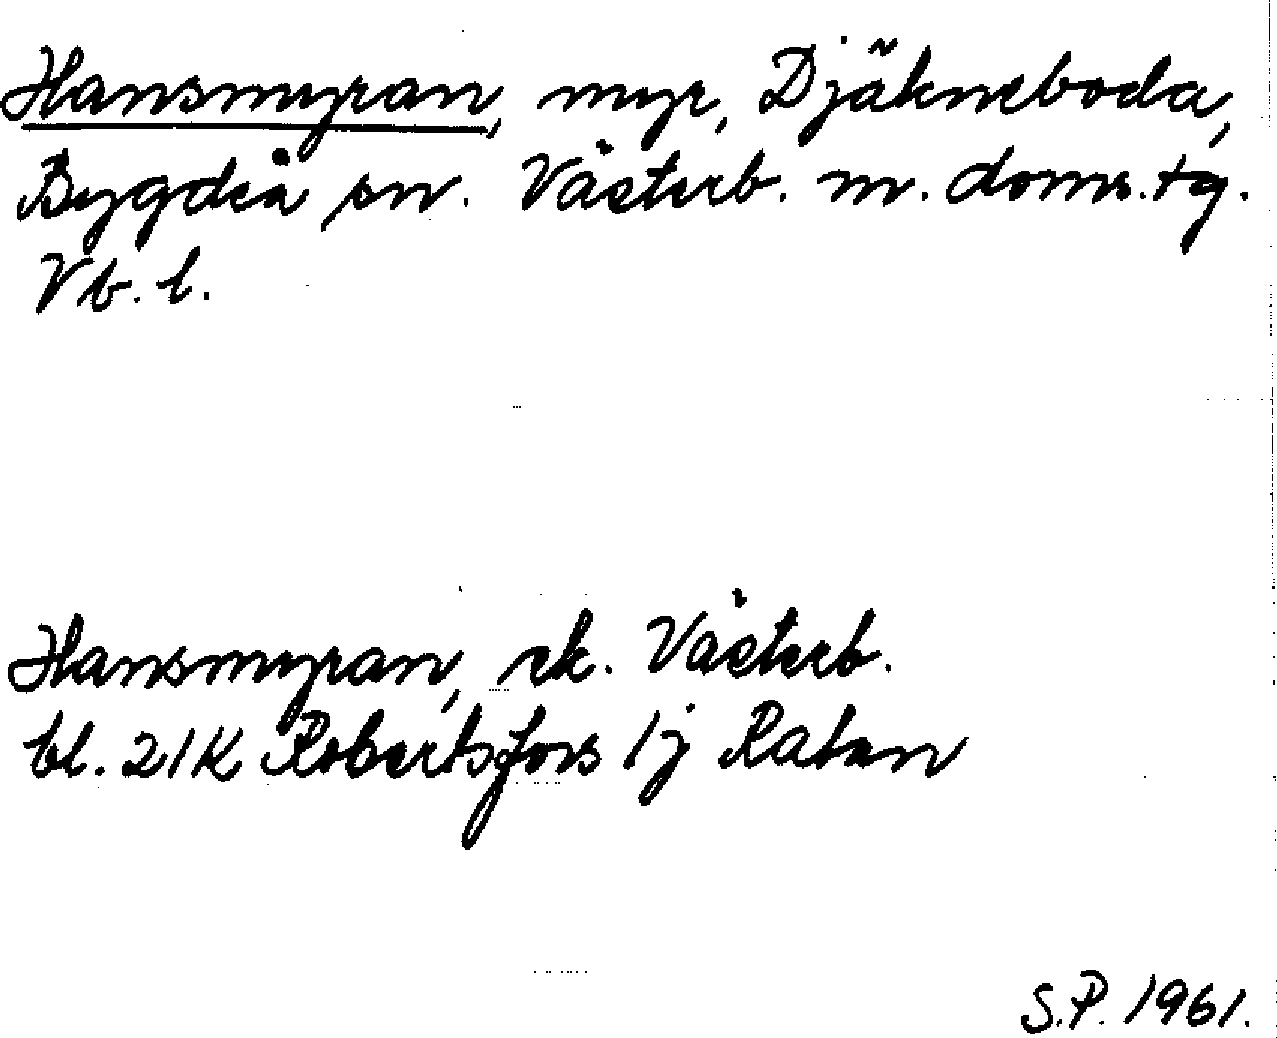 Hansmyran, myr, Djäkneboda,
Bygdeå sn. Västerb. m. doms.tg.
Vb. l.
Hansmyran, ek. Västerb.
bl. 21K Robertsfors 1j Ratan
S.P. 1961.